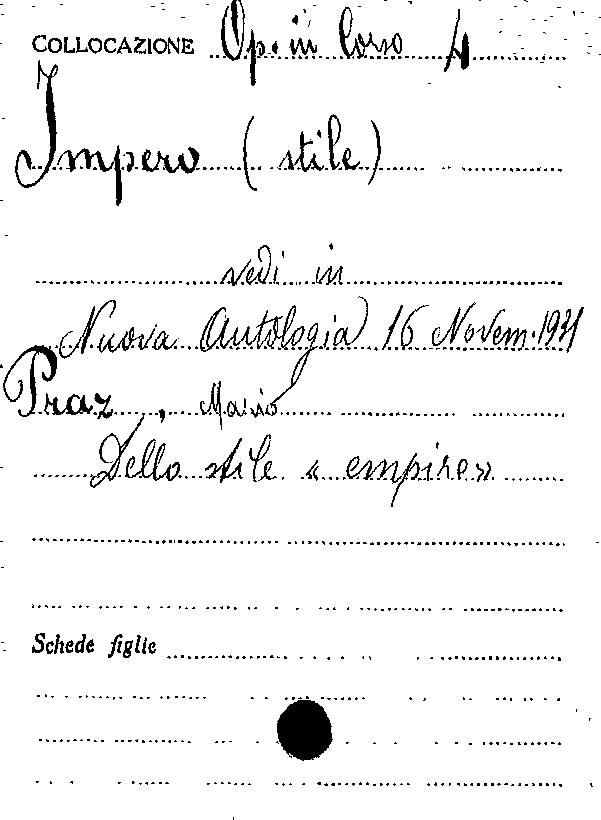 COLLOCAZIONE Op. in Corso 4
Impero (stile)
vedi in
Nuova Antologia 16 Novem. 1931
Praz, Mario
Dello stile « empire»
Schede figlie